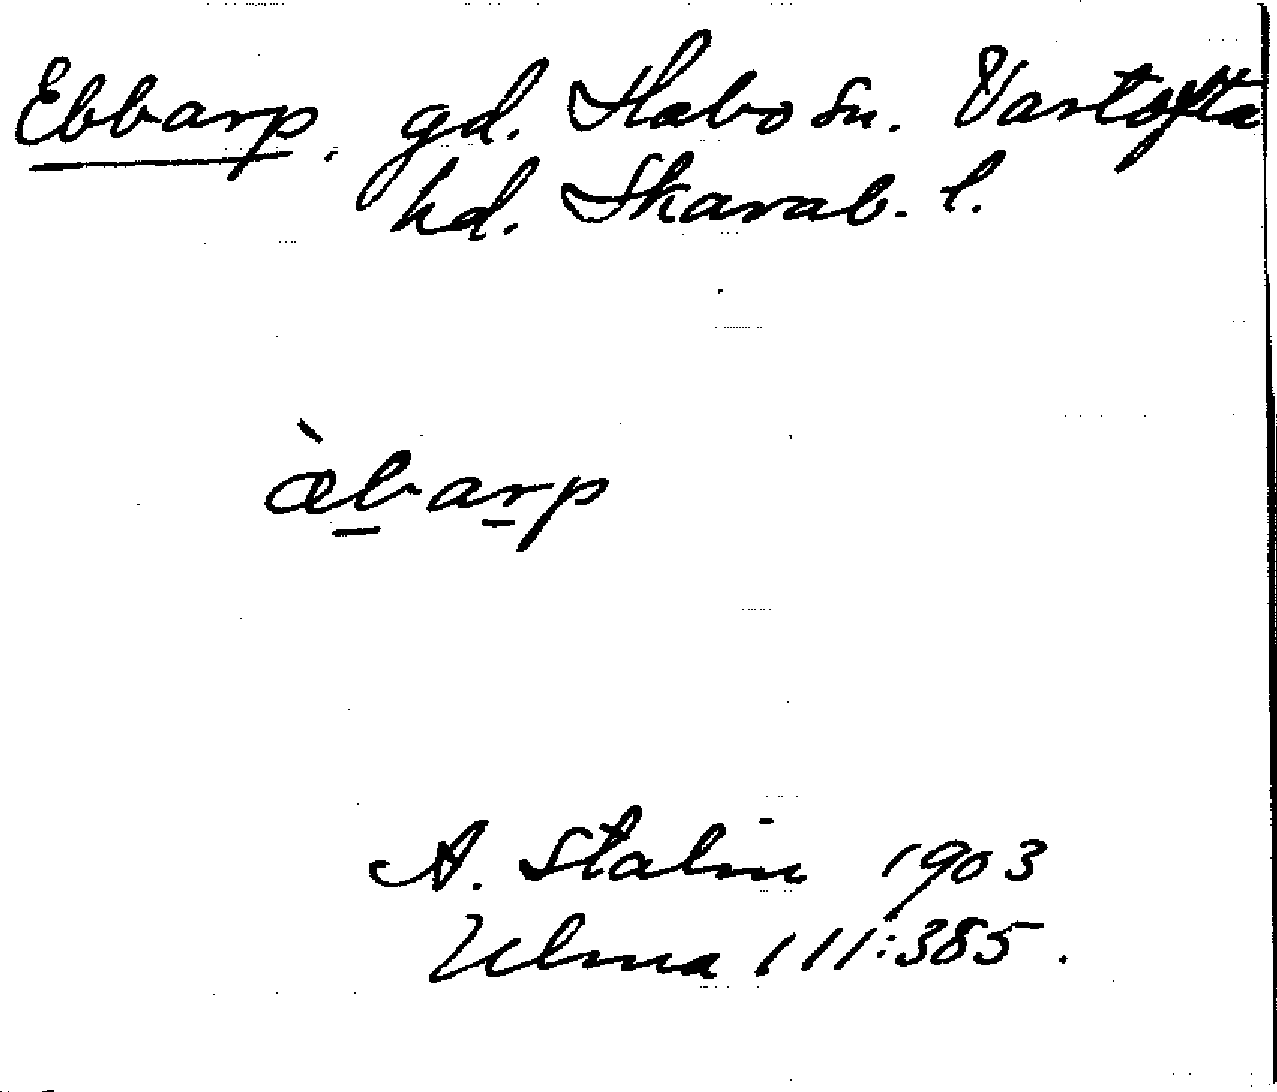 Ebbarp, gd. Habo sn. Vartofta
hd. Skarab. l.
æ̀b̲ar̲p
A. Stalin 1903
Ulma 111:385.